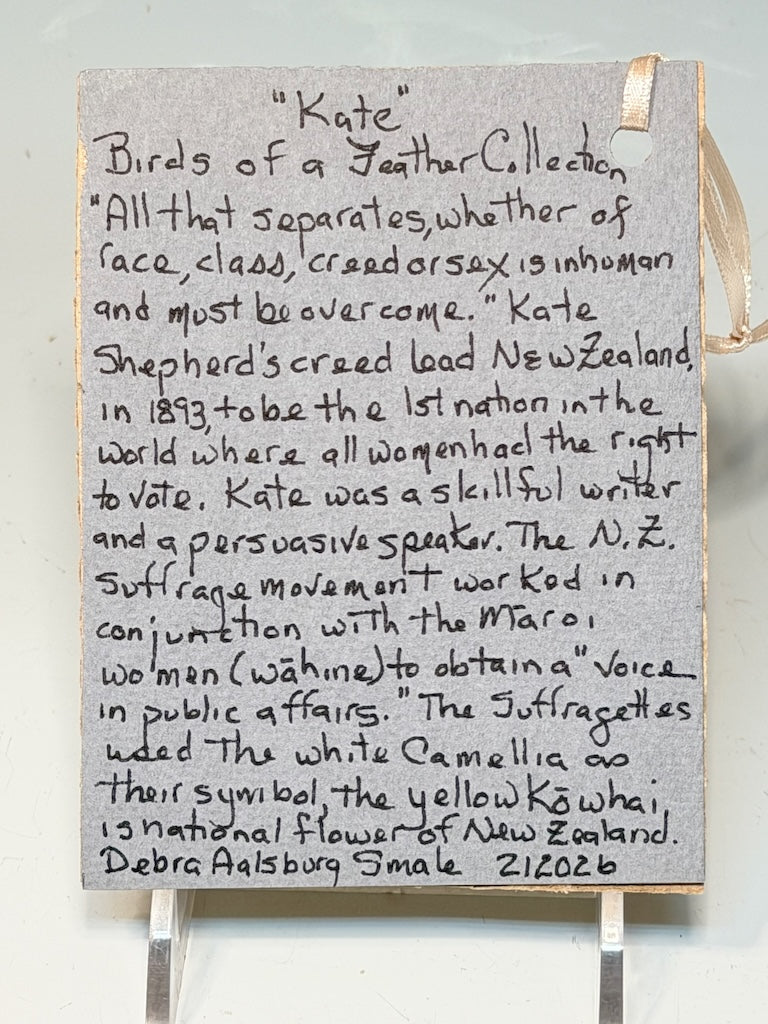 "Kate"
Birds of a Feather Collection
"All that separates, whether of
race, class, creed or sex is inhuman
and must be overcome." Kate
Shepherd's creed lead New Zealand,
in 1893, to be the 1st nation in the
world where all women had the right
to vote. Kate was a skillful writer
and a persuasive speaker. The N.Z.
Suffrage movement worked in
conjunction with the Māroi
women (wāhine) to obtain a "voice
in public affairs." The Suffragettes
used the white Camellia as
their symbol, the yellow Kōwhai,
is national flower of New Zealand.
Debra Aalsburg Smale 212026